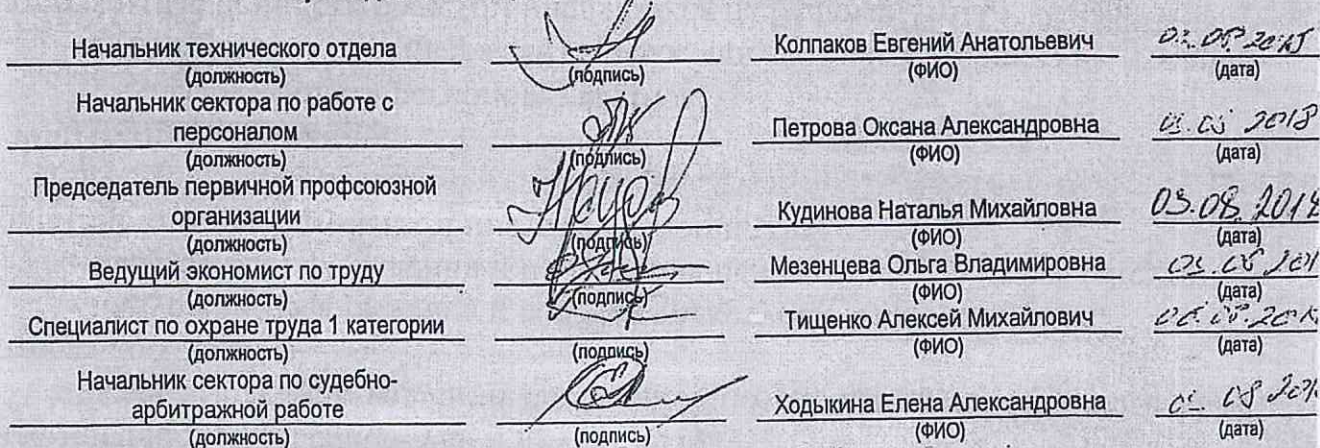 Начальник технического отдела Колпаков Евгений Анатольевич
(должность) (подпись) (ФИО) (дата)
Начальник сектора по работе с
персоналом Петрова Оксана Александровна 2018
(должность) (подпись) (ФИО) (дата)
Председатель первичной профсоюзной
организации Кудинова Наталья Михайловна 03.08.2018
(должность) (подпись) (ФИО) (дата)
Ведущий экономист по труду Мезенцева Ольга Владимировна
(должность) (подпись) (ФИО) (дата)
Специалист по охране труда 1 категории Тищенко Алексей Михайлович
(должность) (подпись) (ФИО) (дата)
Начальник сектора по судебно-
арбитражной работе Ходыкина Елена Александровна
(должность) (подпись) (ФИО) (дата)